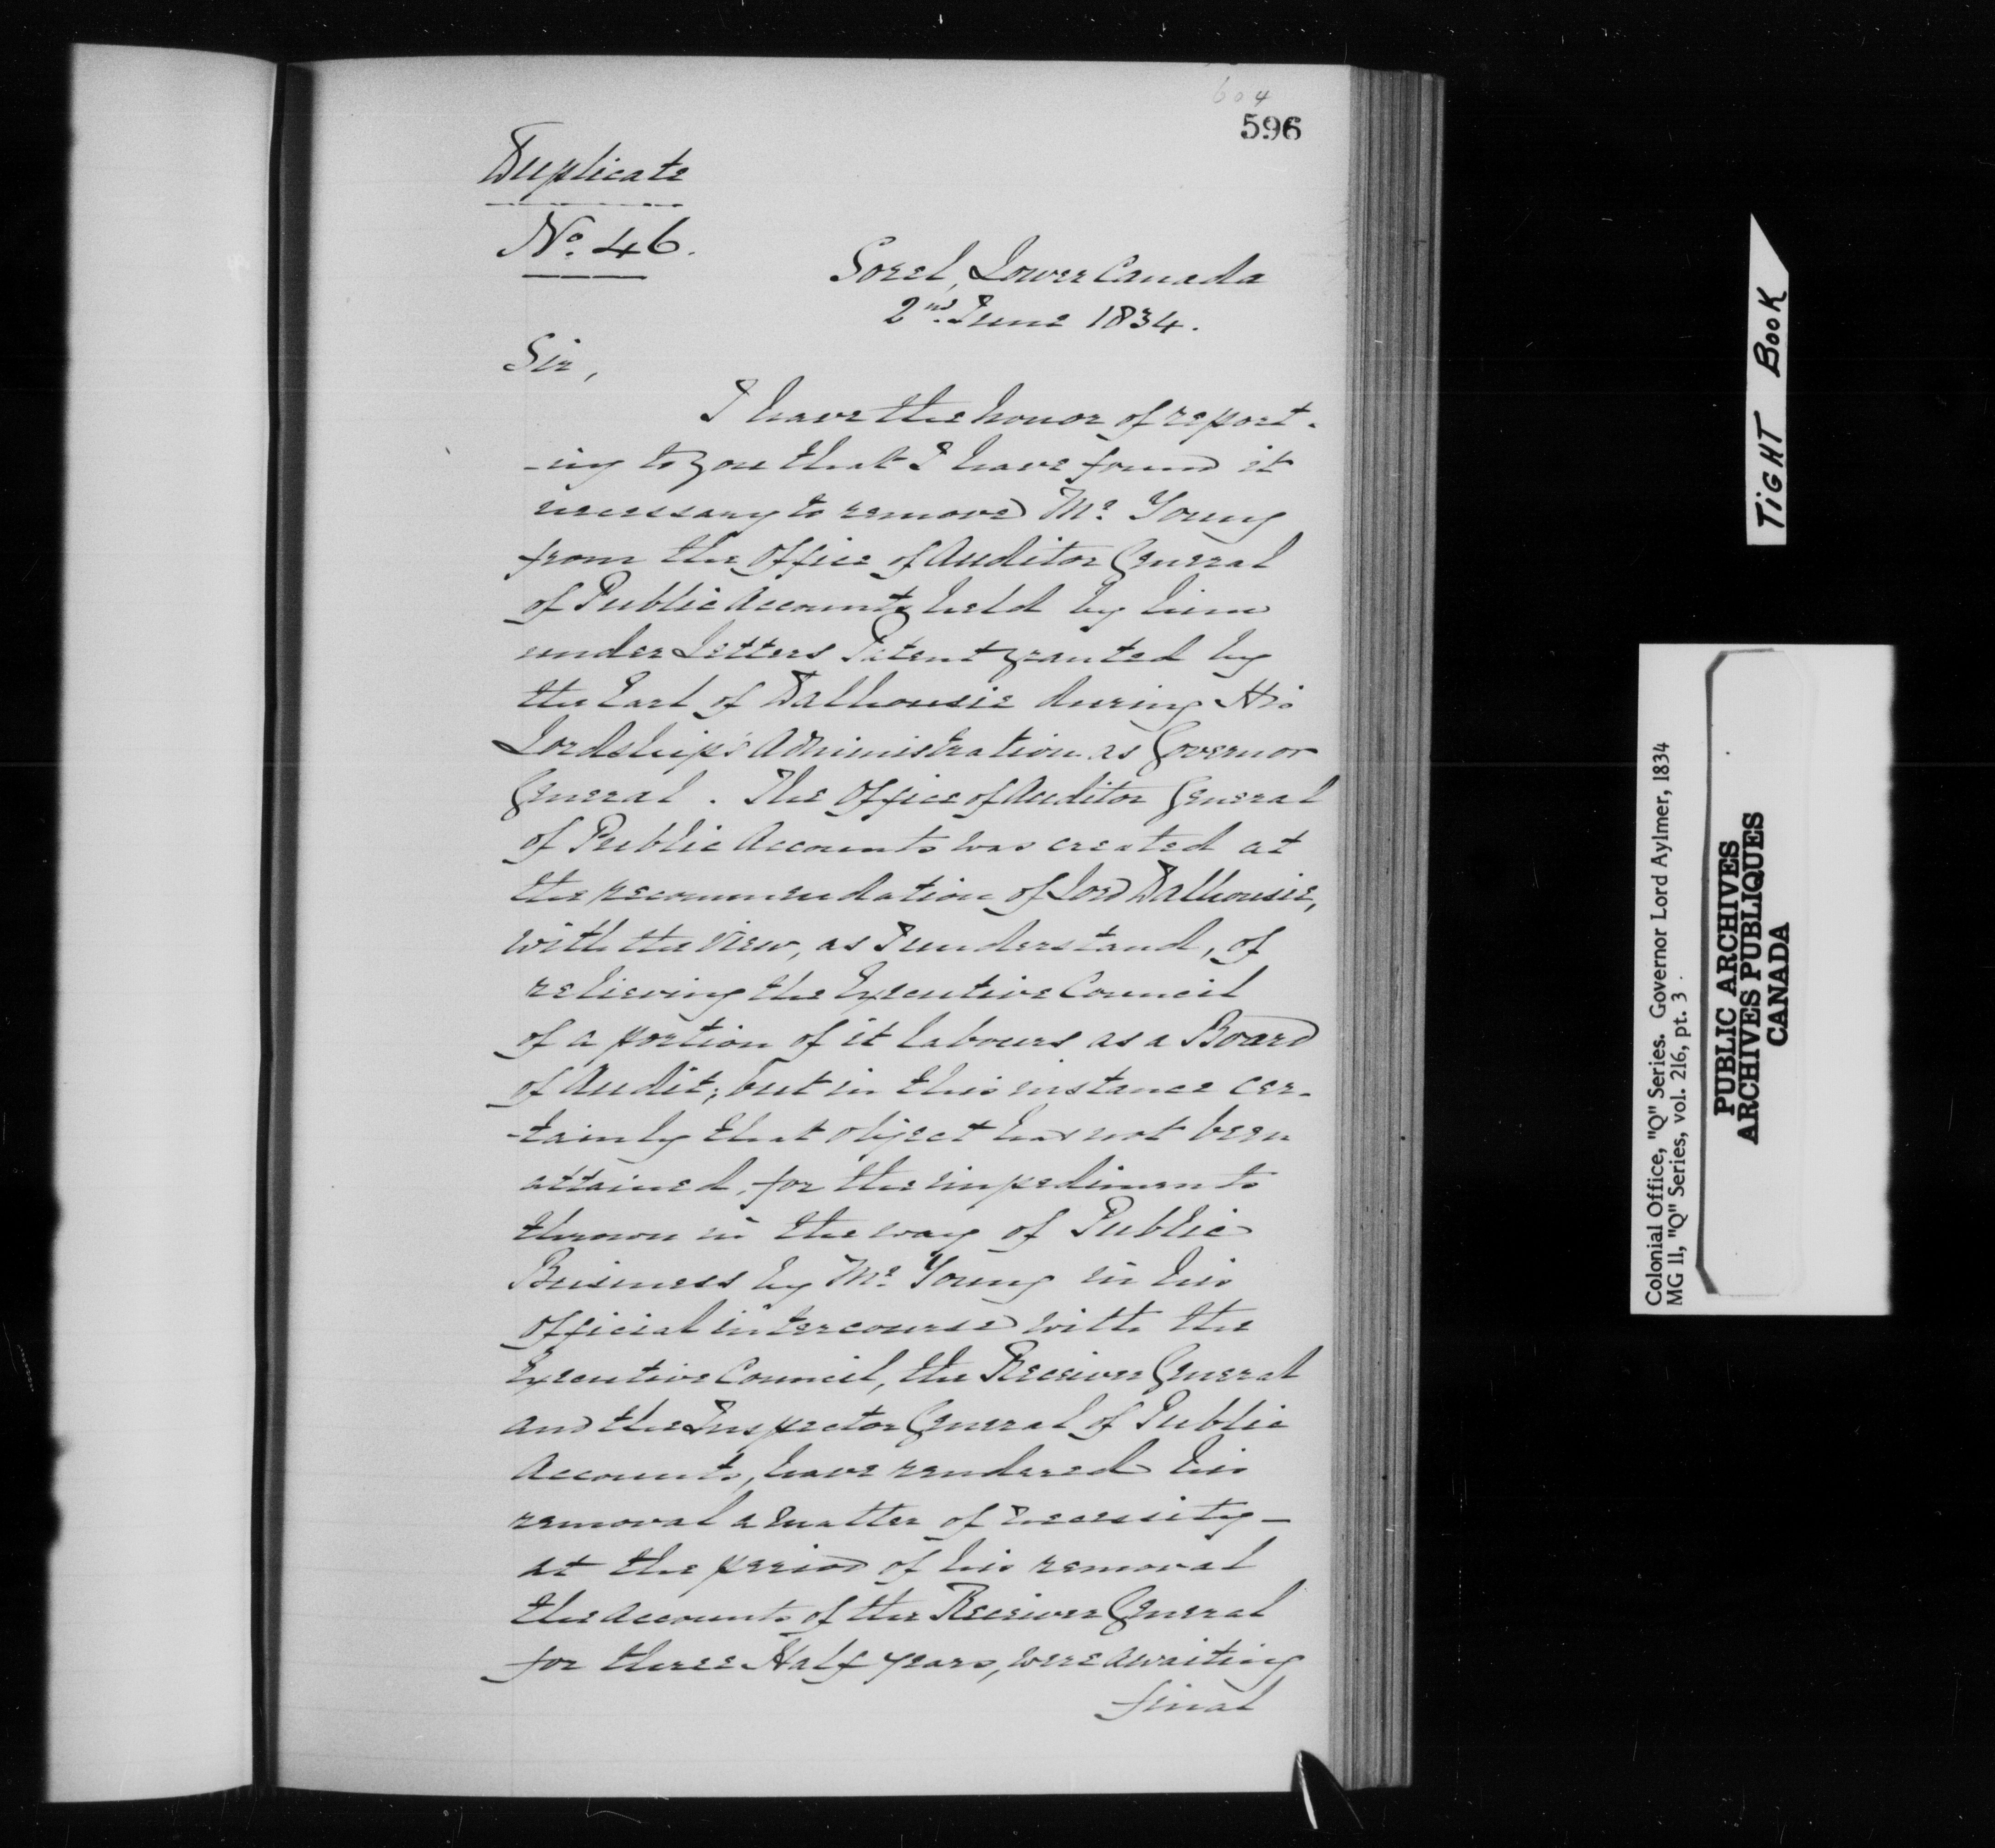 604
596
Duplicate
No. 46.
Sorel, Lower Canada
2nd. June 1834.
Sir,
I have the honor of report-
-ing to you that I have found it
necessary to remove Mr. Young
from the Office of Auditor General
of Public Accounts held by him
under Letters Patent granted by
the Earl of Dalhousie during His
Lordship's Administration as Governor
General. The Office of Auditor General
of Public Accounts was created at
the recommendation of Lord Dalhousie,
with the view, as I understand, of
relieving the Executive Council
of a portion of it labours as a Board
of Audit; but in this instance cer-
-tainly that object has not been
attained, for the impediments
thrown in the way of Public
Business by Mr. Young in his
Official intercourse with the
Executive Council, the Receiver General
and the Inspector General of Public
Accounts, have rendered his
removal a matter of necessity—
at the period of his removal
the Accounts of the Receiver General
for three Half years, were awaiting
final
TIGHT BOOK
Colonial Office, "Q" Series. Governor Lord Aylmer, 1834
MG 11, "Q" Series, vol. 216, pt. 3
PUBLIC ARCHIVES
ARCHIVES PUBLIQUES
CANADA